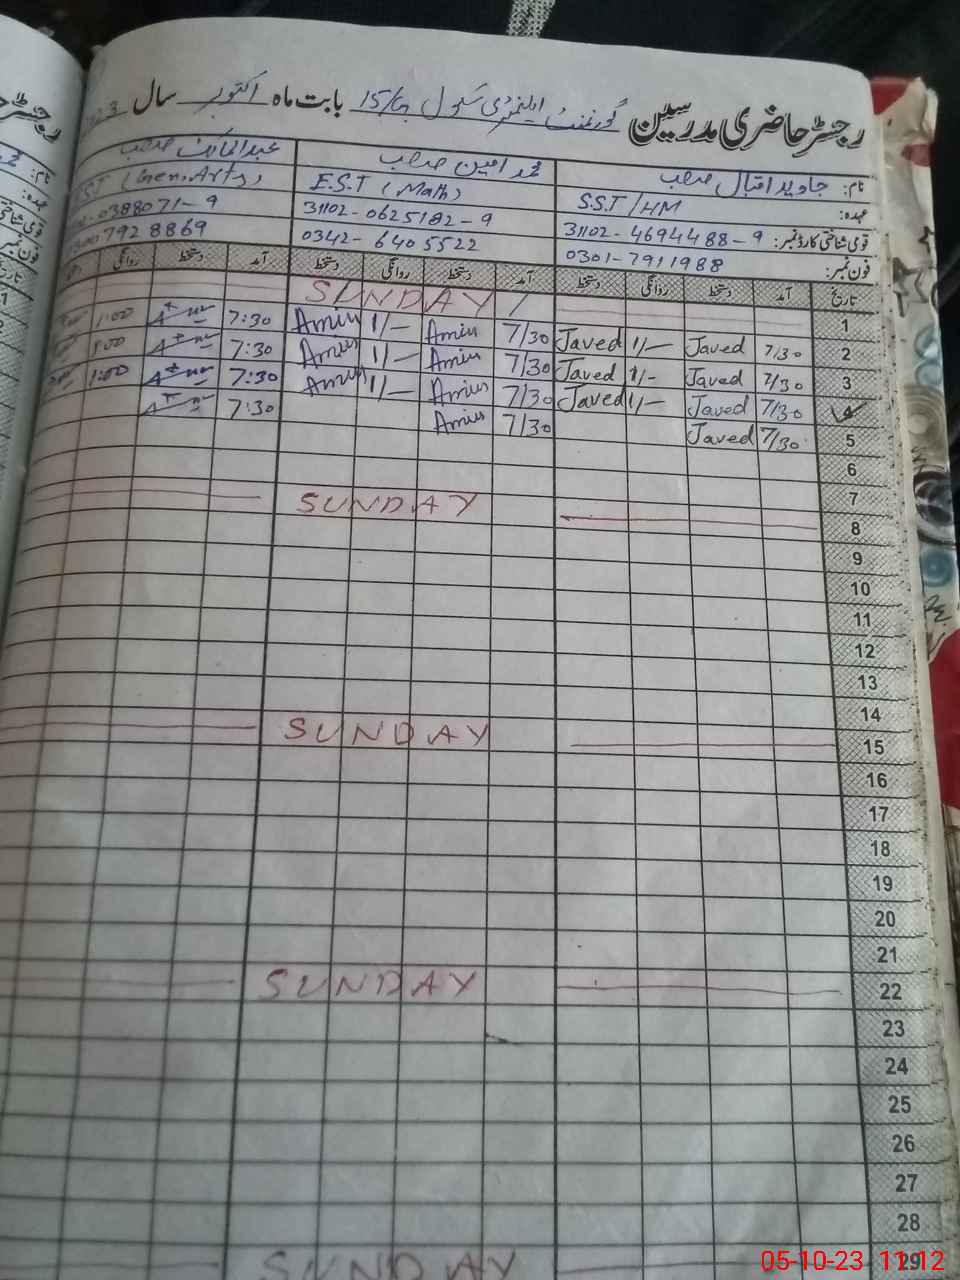 رجسٹر حاضری مدرسین گورنمنٹ ایلیمنٹری سکول 15/ بابت ماہ اکتوبر سال
نام: جاوید اقبال صاحب محمد امین صاحب عبدالمالک صاحب
عہدہ: S.S.T/HM E.S.T (Math) (Gen.Arts)
قومی شناختی کارڈ نمبر: 31102-4694488-9 31102-0625182-9 0388071-9
فون نمبر: 0301-7911988 0342-6405522 7928869
تاریخ آمد دستخط روانگی دستخط آمد دستخط روانگی دستخط آمد دستخط روانگی
1 SUNDAY
2 7/30 Javed 1/- Javed 7/30 Amin 1/- Amin 7:30 1:00
3 7/30 Javed 1/- Javed 7/30 Amin 1/- Amin 7:30 1:00
4 7/30 Javed 1/- Javed 7/30 Amin 1/- Amin 7:30 1:00
5 7/30 Javed 7/30 Amin 7:30
6
7
8 SUNDAY
9
10
11
12
13
14
15 SUNDAY
16
17
18
19
20
21
22 SUNDAY
23
24
25
26
27
28
29 SUNDAY
05-10-23 11:12